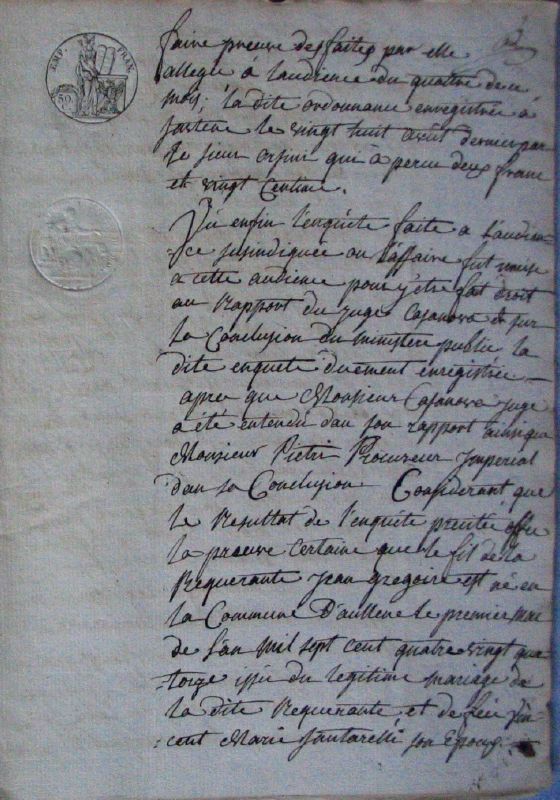 EMP. FRAN.
50
faire preuve des faites par elle
allegué à l'audience du quattre de ce
mois; la dite ordonnance enregistrée a
Sartene le vingt huit avril dernier par
le sieur orsini qui à percu deux franc
et vingt centime.
Vu enfin l'enquéte faite a l'audien
ce susindiquée ou l'affaire fut mise
a cette audience pour y étre fait droit
au Rapport du juge Casanova et sur
la Conclusion du ministere public la
dite enquete duement enregistrée
aprés que Monsieur Casanova juge
a été entendu dan son rapport ainsi que
Monsieur Pietri Procureur Imperial
dan sa Conclusion Considerant que
le Resultat de l'enquéte
la preuve certaine que le fil de la
Requerante Jean Gregoire est né en
la Commune D'aullene le premier mai
de l'an mil sept cent quatre vingt qua
torze issu du legitime mariage de
la dite Requerante et de feu Vin
cent Marie Santarelli son Epoux.